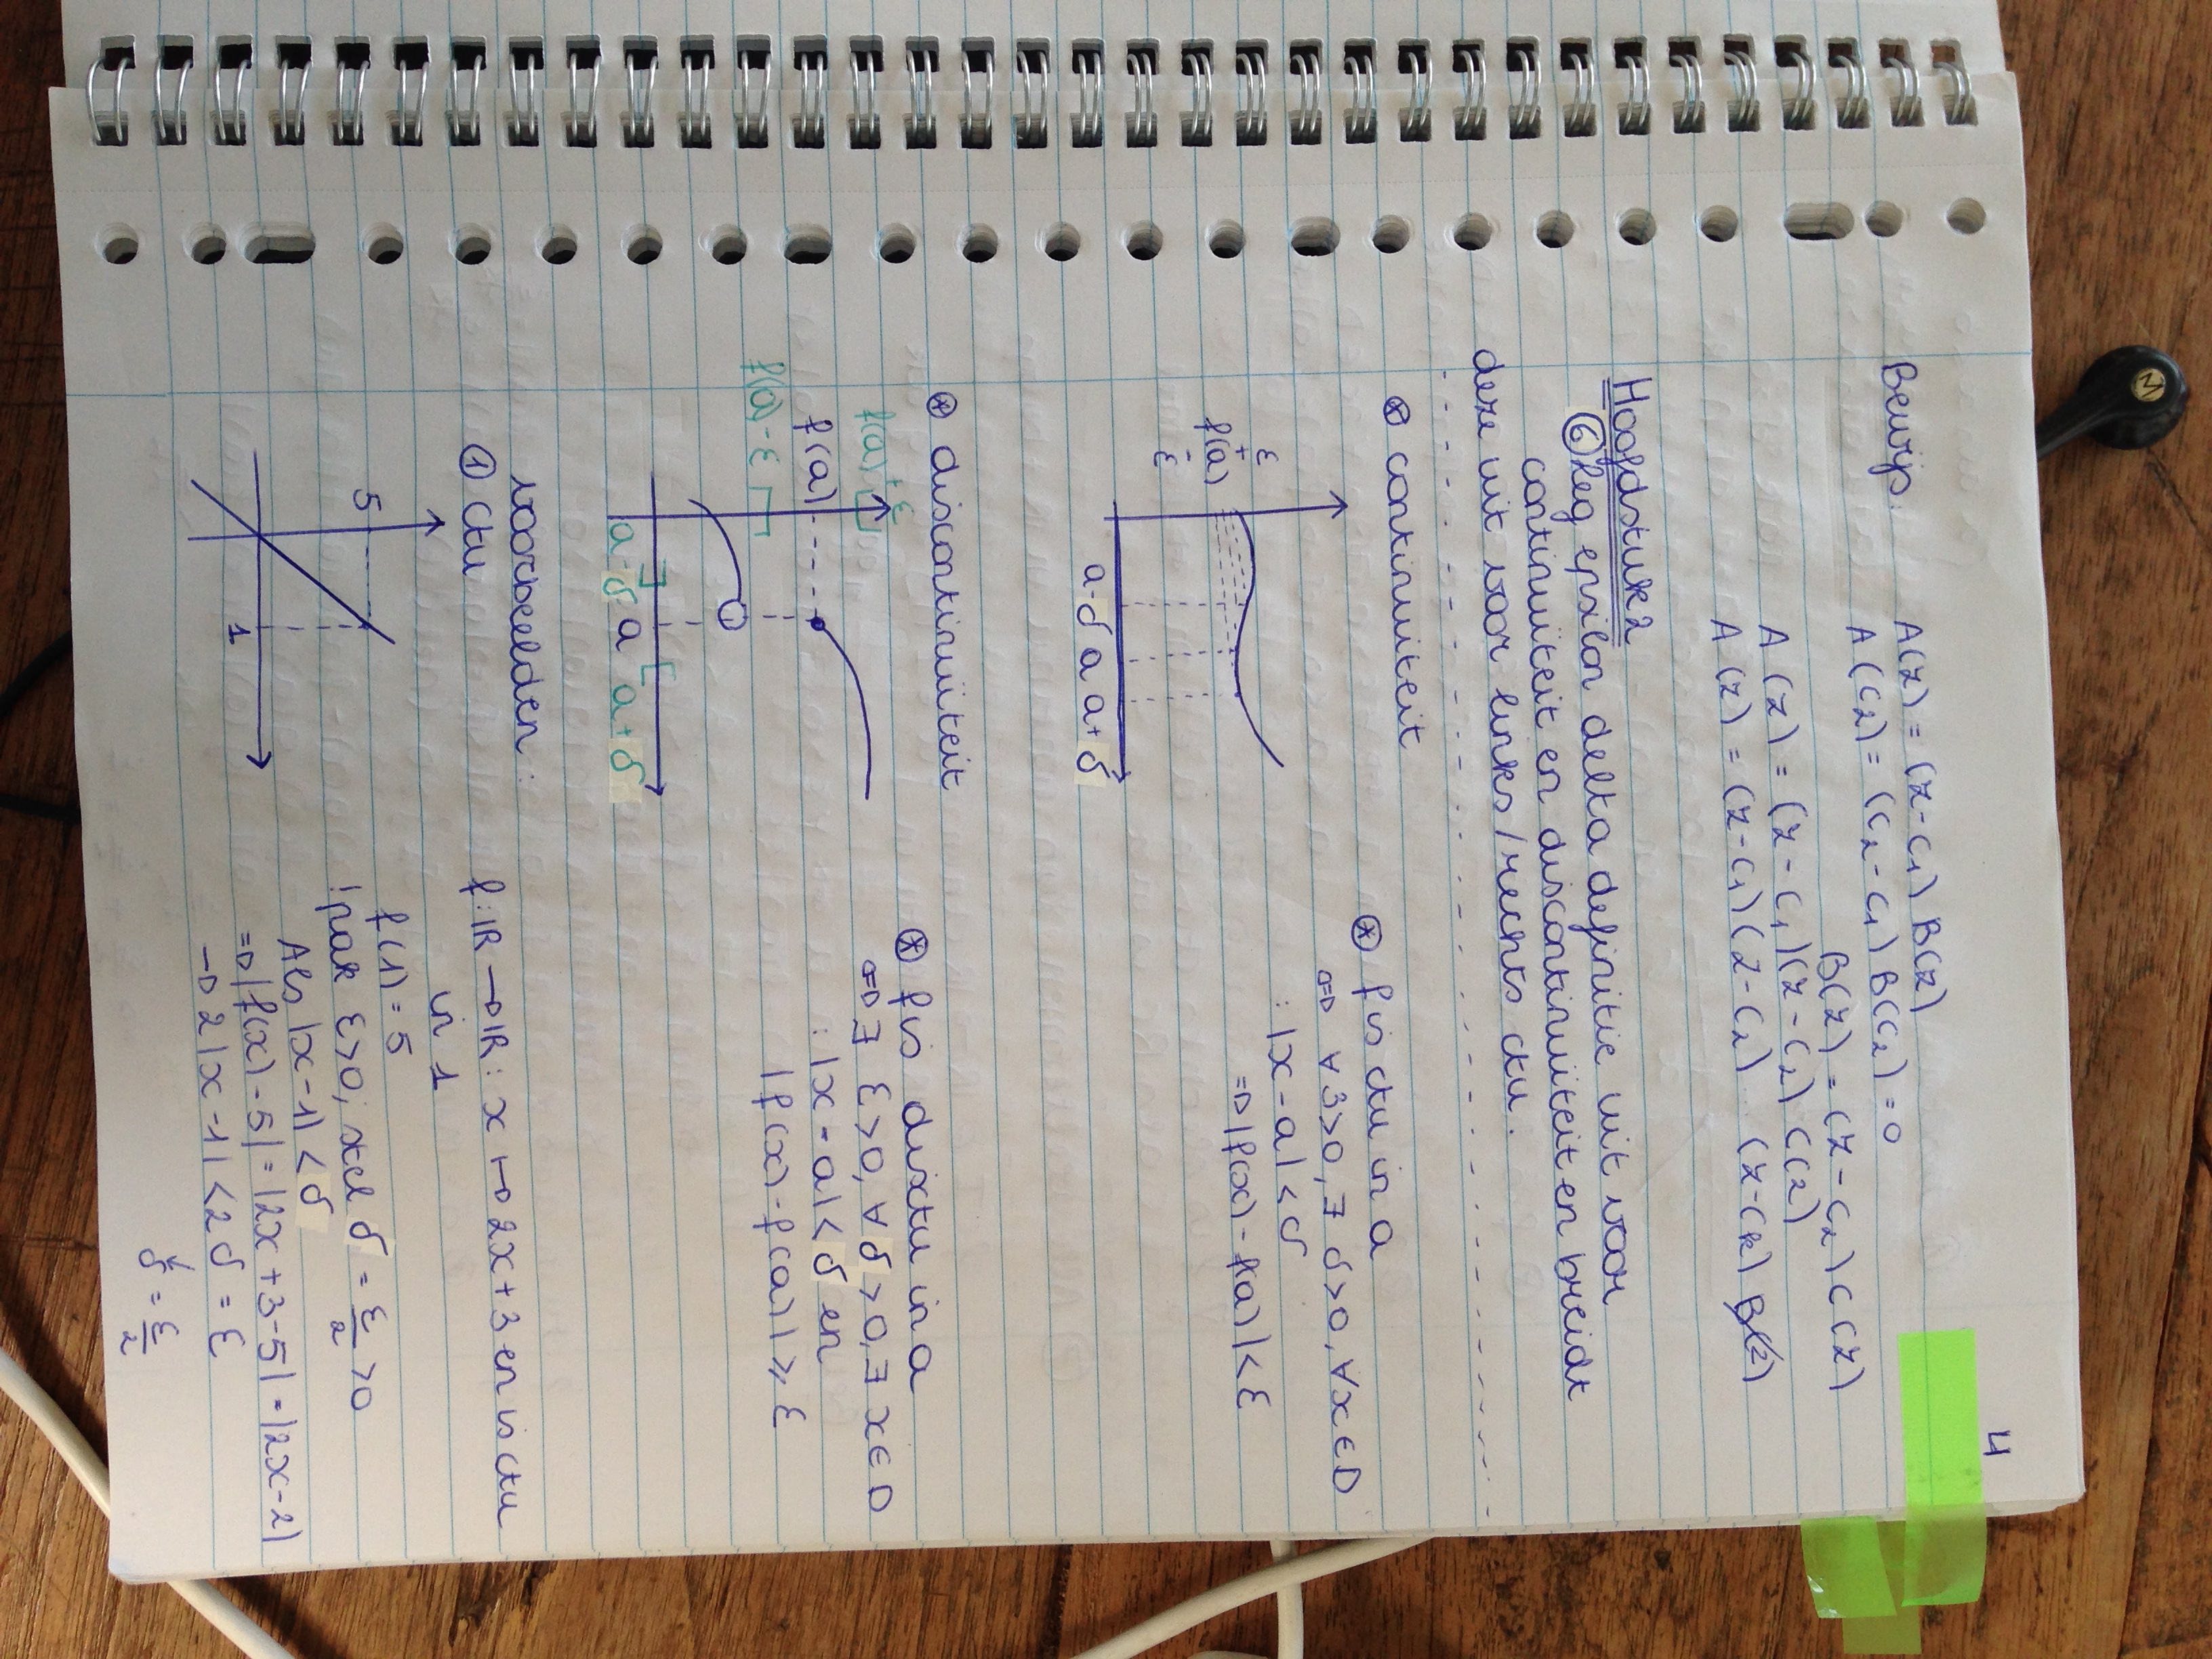 4
Bewijs.
A(z) = (z-c₁) B(z)
A(c₂) = (c₂-c₁) B(c₂) = 0
B(z) = (z-c₂) C(z)
A(z) = (z-c₁)(z-c₂) C(z)
A(z) = (z-c₁)(z-c₂) ... (z-ck) B(z)
Hoofdstuk 2
⑥ Leg epsilon delta definitie uit voor
continuïteit en discontinuïteit en breidt
deze uit voor links/rechts ctu.
⊛ continuïteit
ε
+
f(a)
-
ε
a-δ a a+δ
⊛ f is ctu in a
⇔ ∀ 3>0, ∃ δ>0, ∀x∈D
: |x-a| < δ
⇒ |f(x) - f(a)| < ε
⊛ discontinuïteit
f(a)+ε
f(a)
f(a)-ε
a-δ a a+δ
⊛ f is disctu in a
⇔ ∃ ε>0, ∀ δ>0, ∃ x∈D
: |x-a| < δ en
|f(x) - f(a)| ⩾ ε
voorbeelden:
① ctu
5
1
f: ℝ → ℝ: x ↦ 2x+3 en is ctu
in 1
f(1) = 5
! pak ε>0, stel δ = ε/2 > 0
Als |x-1| < δ
⇒ |f(x) - 5| = |2x+3-5| = |2x-2|
→ 2|x-1| < 2δ = ε
↙
δ = ε/2